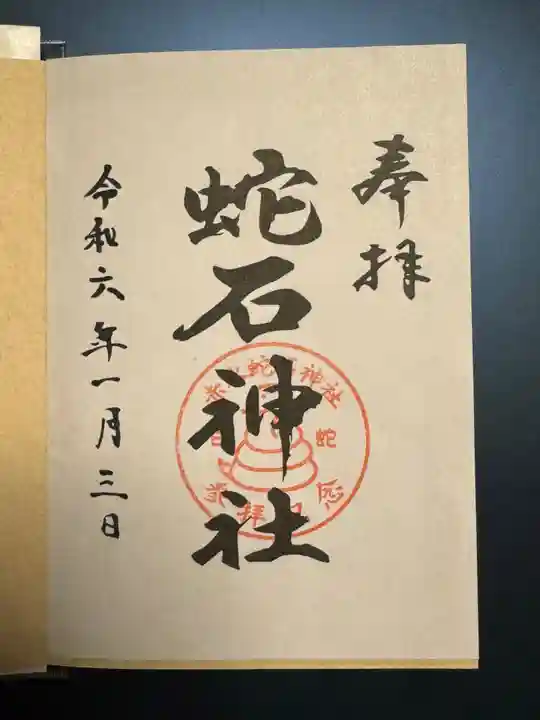 奉拝
蛇石神社
令和六年一月三日
神社
蛇
拝